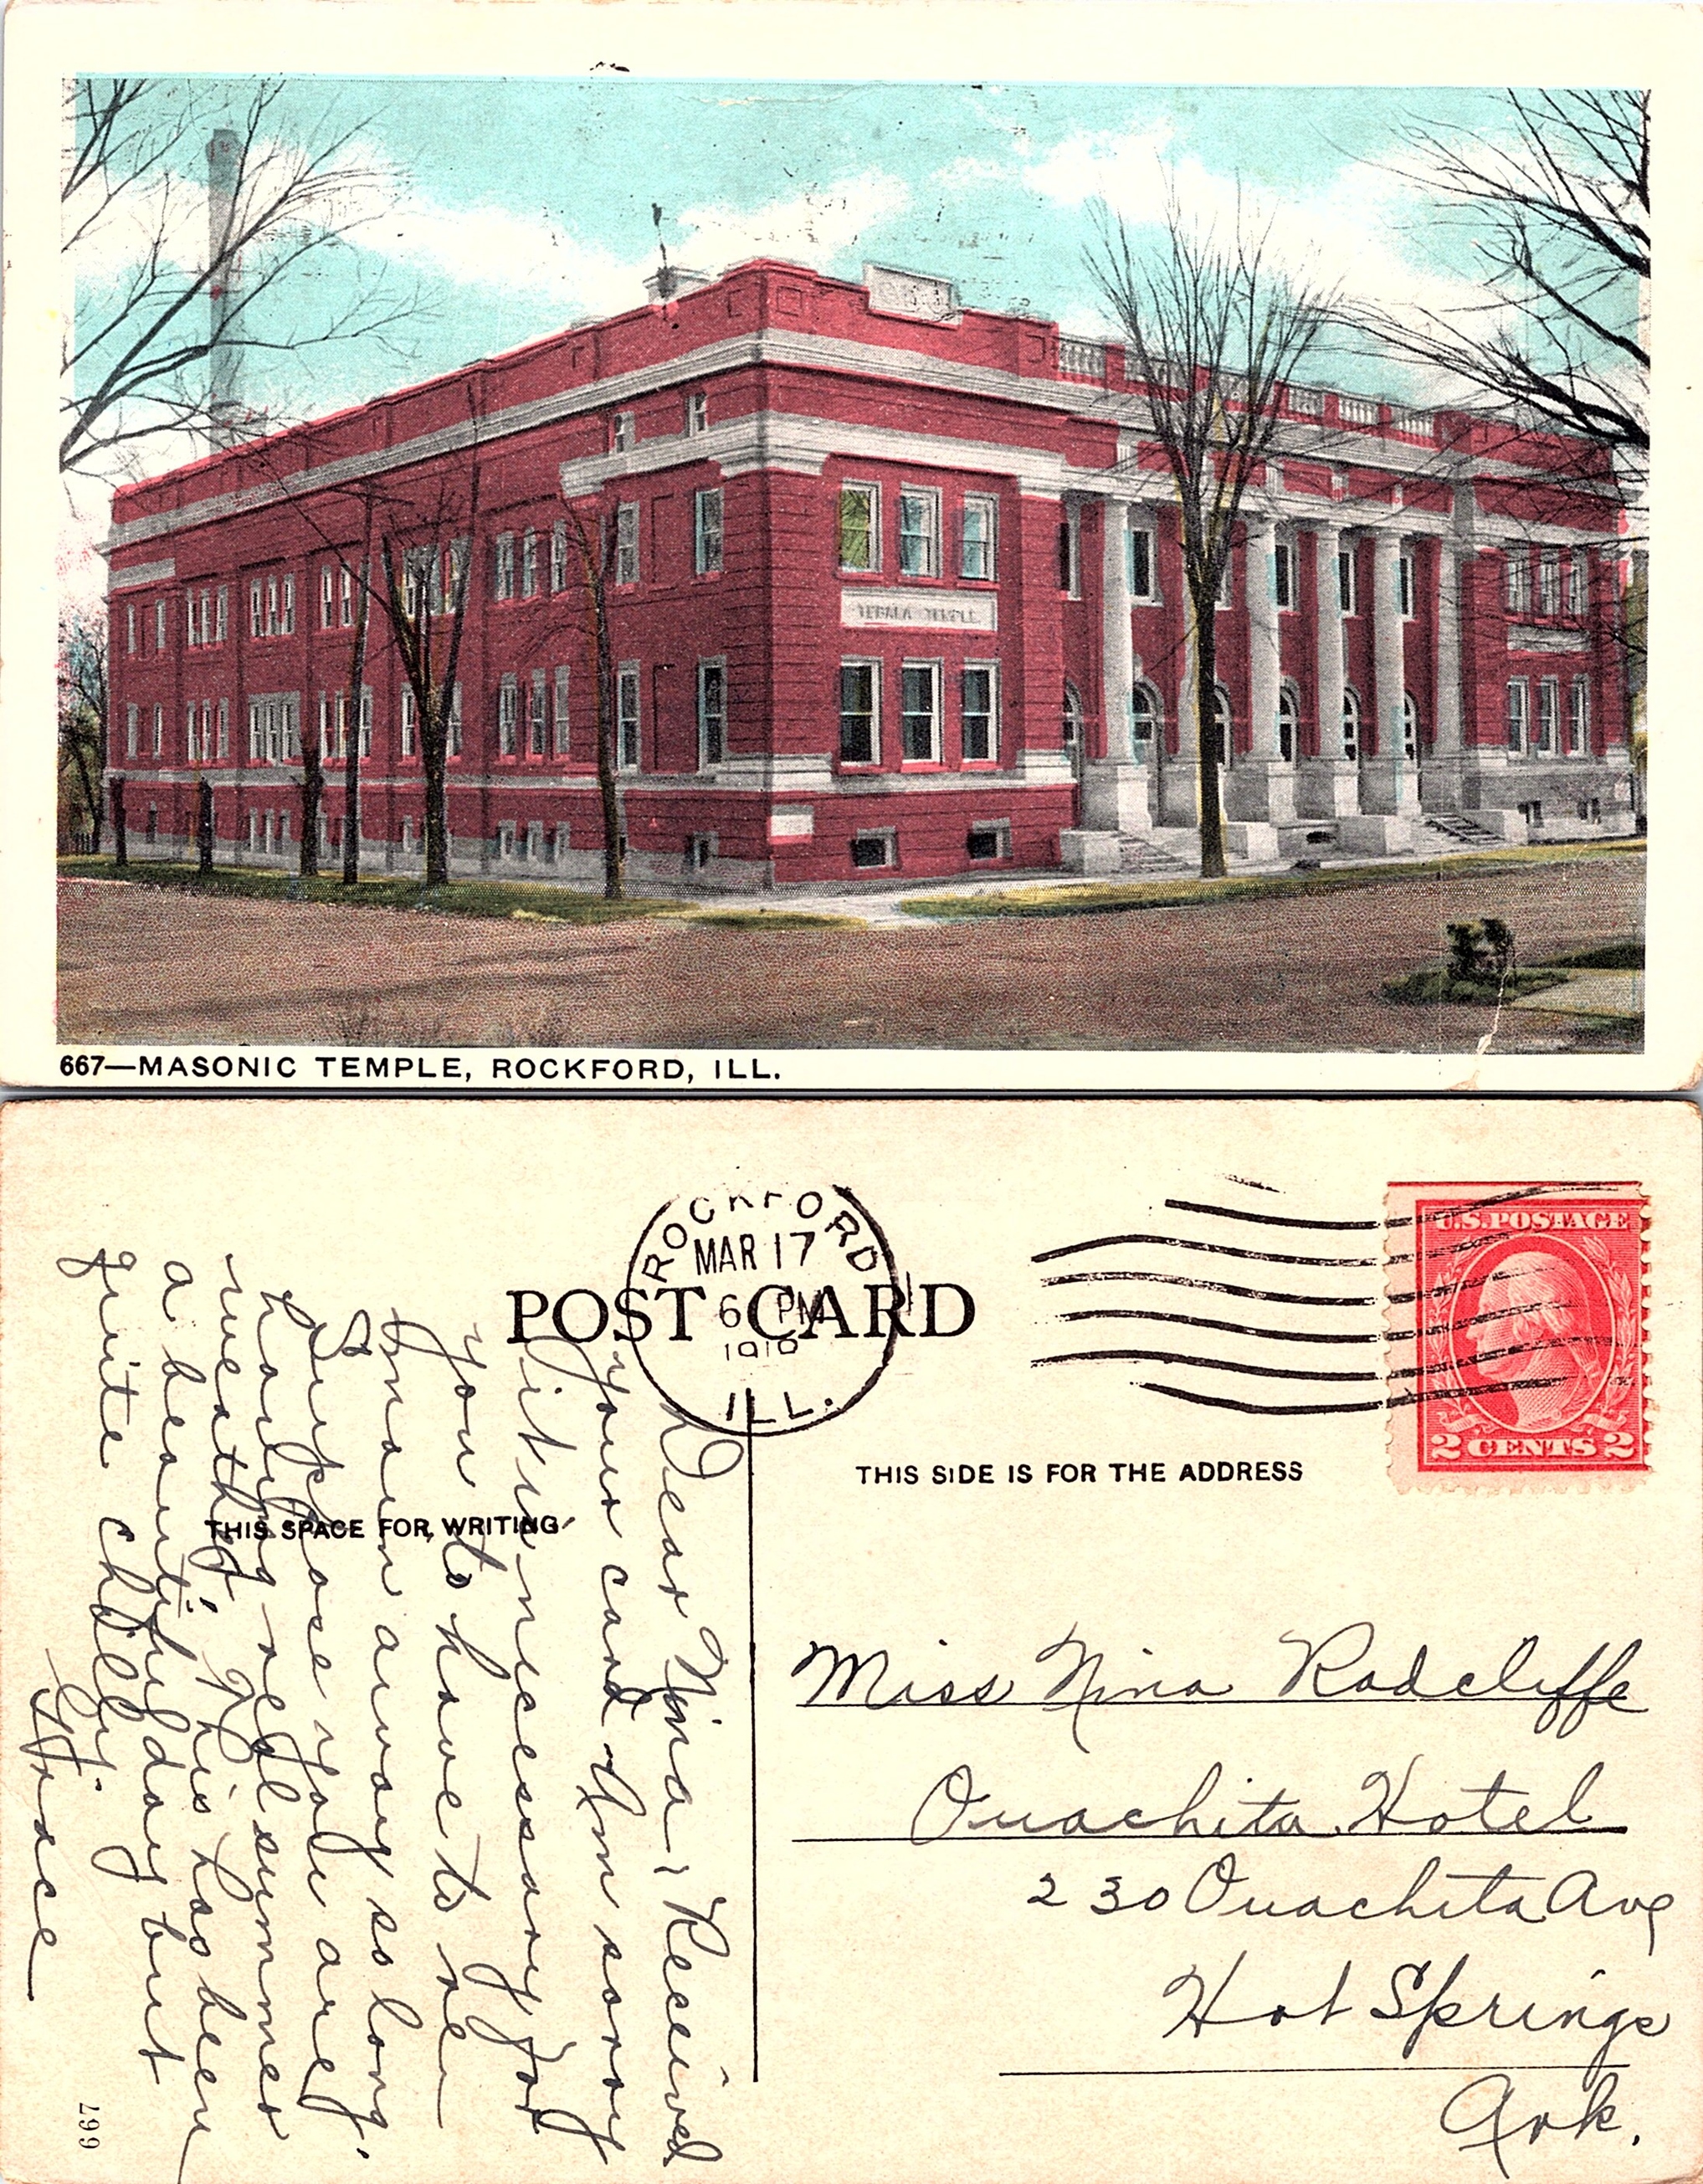 TEBALA TEMPLE
667—MASONIC TEMPLE, ROCKFORD, ILL.
ROCKFORD
MAR 17
6 PM
ILL.
POST CARD
U.S. POSTAGE
2 CENTS 2
THIS SIDE IS FOR THE ADDRESS
THIS SPACE FOR WRITING
Dear Nina; Received
your card. Am sorry
it is necessary for
you to have to re
main away so long.
Suppose you are
having real summer
weather. This has been
a beautiful day but
quite chilly.
Grace
Miss Nina Radcliffe
Ouachita Hotel
230 Ouachita Ave
Hot Springs
Ark.
667